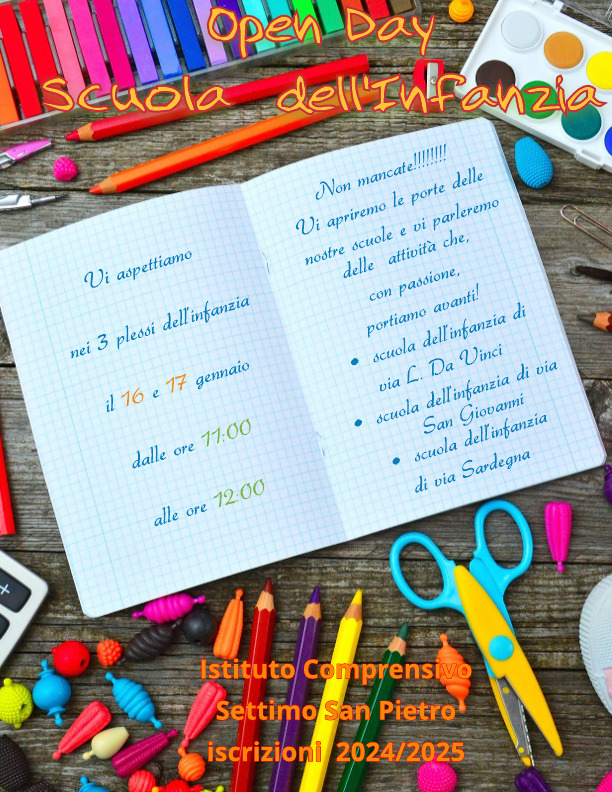 Open Day
Scuola dell'Infanzia
Vi aspettiamo
nei 3 plessi dell'infanzia
il 16 e 17 gennaio
dalle ore 11:00
alle ore 12:00
Non mancate!!!!!!!!
Vi apriremo le porte delle
nostre scuole e vi parleremo
delle attività che,
con passione,
portiamo avanti!
• scuola dell'infanzia di
via L. Da Vinci
• scuola dell'infanzia di via
San Giovanni
• scuola dell'infanzia
di via Sardegna
Istituto Comprensivo
Settimo San Pietro
iscrizioni 2024/2025